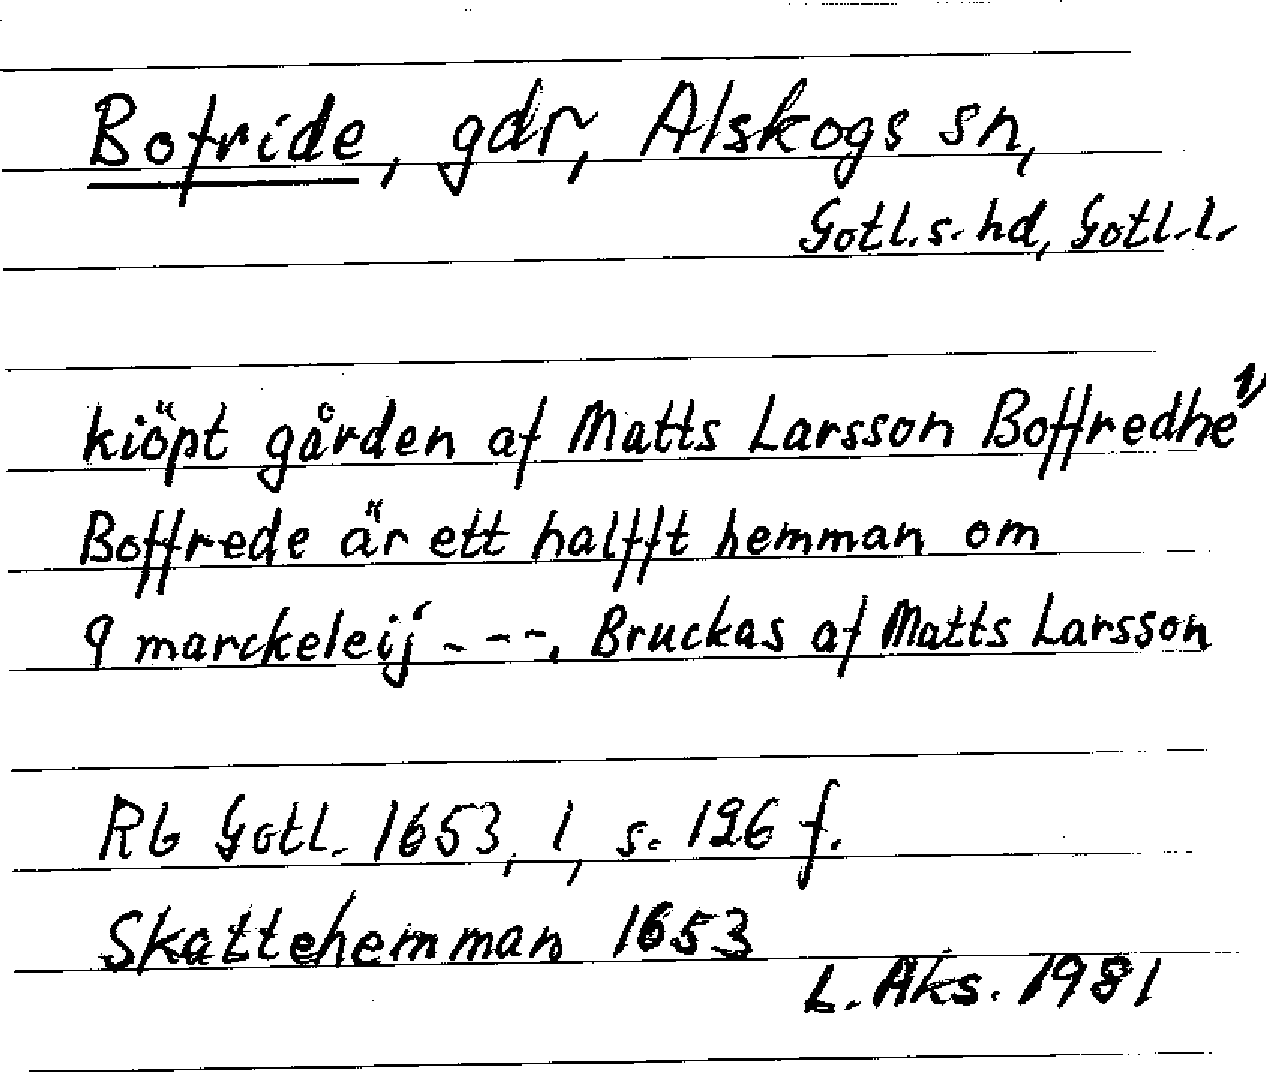 Bofride, gdr, Alskogs sn,
Gotl. s. hd, Gotl. l.
kiöpt gården af Matts Larsson Boffredhe 1)
Boffrede är ett halfft hemman om
9 marckeleij - - -. Bruckas af Matts Larsson
Rb Gotl. 1653, 1, s. 126 f.
Skattehemman 1653
L. Aks. 1981